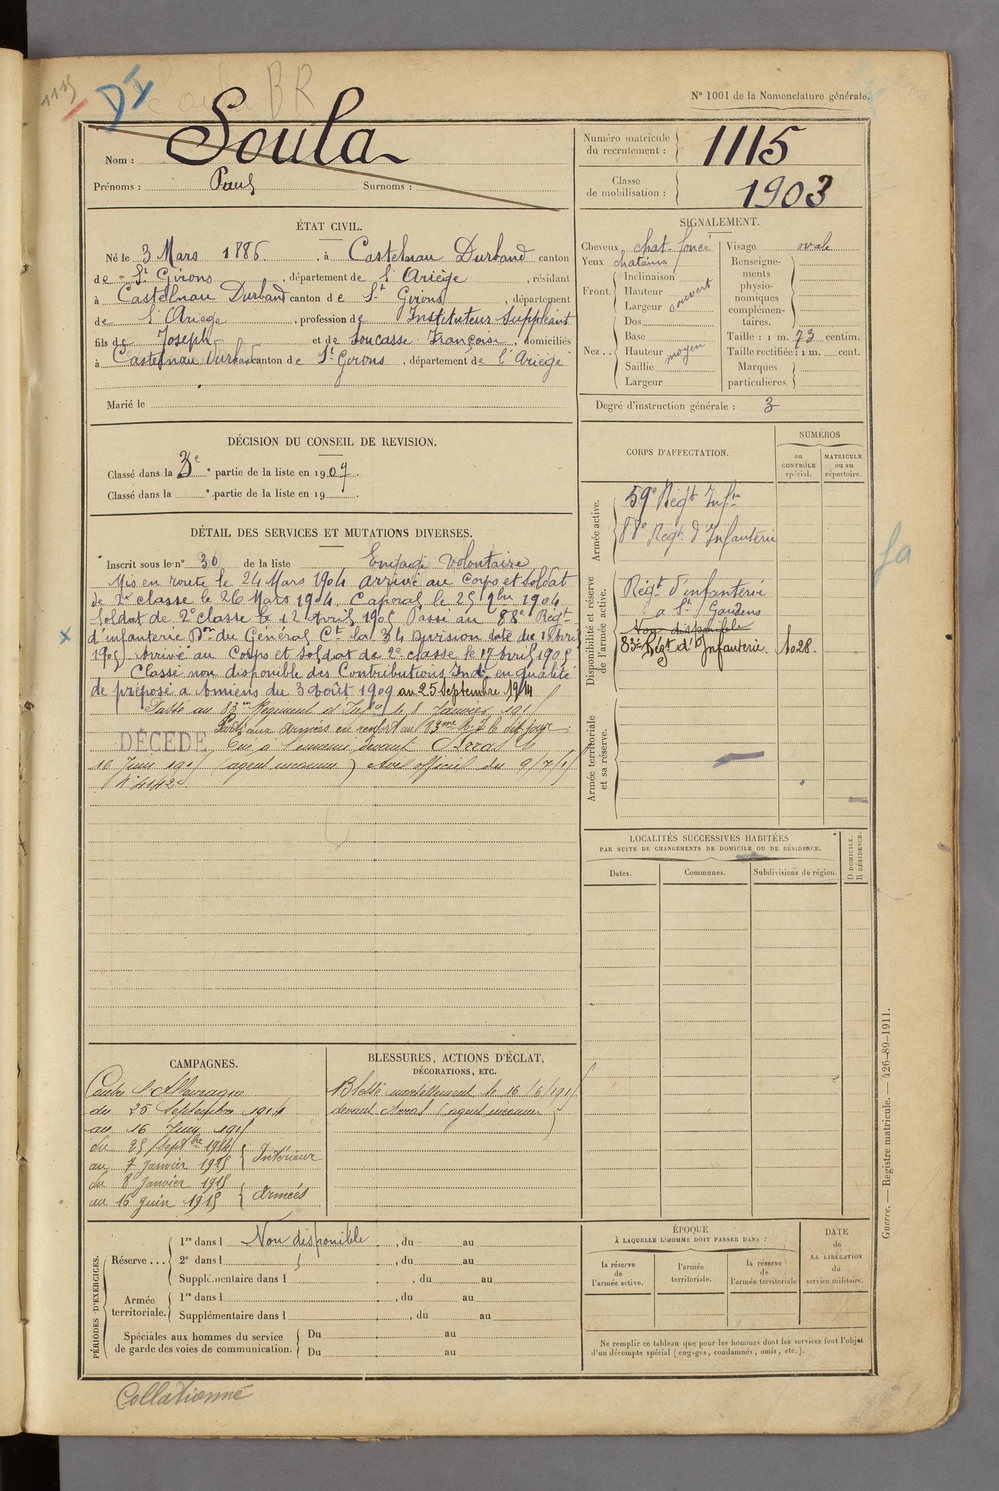 1115
DI
BR
N° 1001 de la Nomenclature générale.
Nom : Soula
Prénoms : Paul Surnoms :
Numéro matricule du recrutement : 1115
Classe de mobilisation : 1903
ÉTAT CIVIL.
Né le 3 Mars 1886, à Castelnau Durband canton
de St Girons, département de l'Ariège, résidant
à Castelnau Durband canton de St Girons, département
de l'Ariège, profession de Instituteur Suppléant
fils de Joseph et de Loucasse Françoise, domiciliés
à Castelnau Durband canton de St Girons, département de l'Ariège
Marié le
SIGNALEMENT.
Cheveux chat. foncé
Yeux chatains
Front Inclinaison
Hauteur couvert
Largeur
Nez Dos
Base
Hauteur moyen
Saillie
Largeur
Visage ovale
Renseignements physionomiques complémentaires.
Taille : 1 m. 73 centim.
Taille rectifiée : 1 m. cent.
Marques particulières
Degré d'instruction générale : 3
DÉCISION DU CONSEIL DE REVISION.
Classé dans la 3e partie de la liste en 1907.
Classé dans la e partie de la liste en 19
DÉTAIL DES SERVICES ET MUTATIONS DIVERSES.
Inscrit sous le n° 30 de la liste Engagé volontaire
Mis en route le 24 Mars 1904 arrivé au Corps et Soldat
de 2e classe le 26 Mars 1904. Caporal le 25 9bre 1904
Soldat de 2e classe le 12 Avril 1905 Passé au 88e Régt
d'infanterie Don du Général Ct la 34 Division date du 18 Avril
1905. Arrivé au Corps et Soldat de 2e classe le 17 Avril 1905
Classé non disponible des Contributions Indes en qualité
de préposé à Amiens du 3 Août 1909 au 25 Septembre 1914
Passé au 83me Régiment d'Infrie le 8 Janvier 1915
Parti aux Armées en renfort au 83me R.I. le dit jour
DÉCÉDÉ Tué à l'ennemi devant Arras le
16 Juin 1915 (agent inconnu) Avis officiel du 9/7/15
N° 4142
CORPS D'AFFECTATION.
NUMÉROS
au CONTRÔLE spécial.
MATRICULE ou au répertoire.
Armée active.
59e Régt Infie
88e Régt d'Infanterie
Disponibilité et réserve de l'armée active.
Régt d'infanterie
à St Gaudens
Non disponible
83e Régt d'Infanterie. 1028.
Armée territoriale et sa réserve.
LOCALITÉS SUCCESSIVES HABITÉES
PAR SUITE DE CHANGEMENTS DE DOMICILE OU DE RÉSIDENCE.
Dates. Communes. Subdivisions de région.
D DOMICILE. R RÉSIDENCE.
CAMPAGNES.
Contre l'Allemagne
du 25 Septembre 1914
au 16 Juin 1915
du 25 Septbre 1914
au 7 Janvier 1915 Intérieur
du 8 Janvier 1915
au 16 Juin 1915 Armées
BLESSURES, ACTIONS D'ÉCLAT,
DÉCORATIONS, ETC.
Blessé mortellement le 16/6/1915
devant Arras (agent inconnu)
PÉRIODES D'EXERCICES.
Réserve ... 1re dans l Non disponible, du au
2e dans l , du au
Supplémentaire dans l , du au
Armée territoriale. 1re dans l , du au
Supplémentaire dans l , du au
Spéciales aux hommes du service de garde des voies de communication. Du au
Du au
ÉPOQUE
À LAQUELLE L'HOMME DOIT PASSER DANS :
la réserve de l'armée active.
l'armée territoriale.
la réserve de l'armée territoriale
DATE de LA LIBÉRATION du service militaire.
Ne remplir ce tableau que pour les hommes dont les services font l'objet
d'un décompte spécial (engagés, condamnés, omis, etc.).
Guerre. — Registre matricule. — 426-89-1911.
Collationné